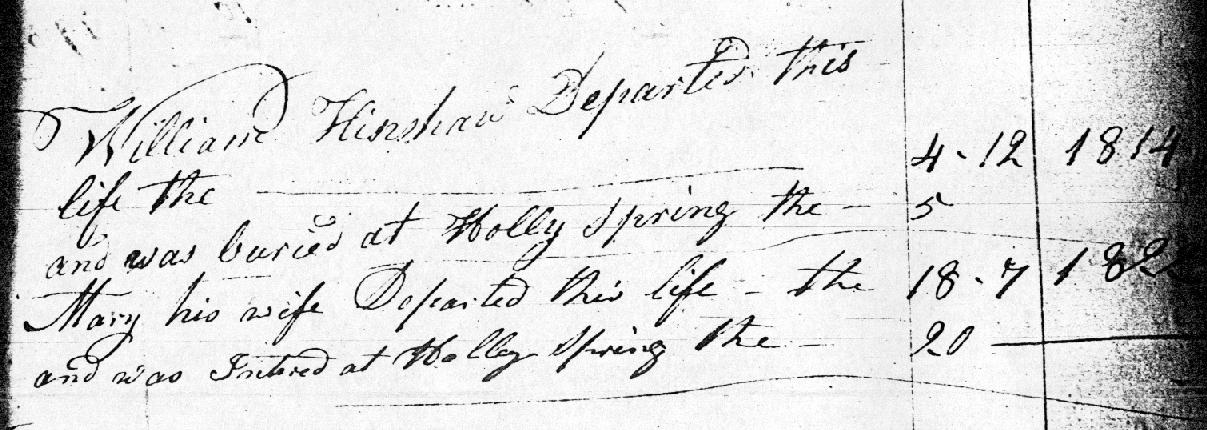 William Hinshaw Departed this
life the 4-12 1814
and was buried at Holly Spring the - 5
Mary his wife Departed this life - the 18-7 182
and was Intered at Holly Spring the - 20